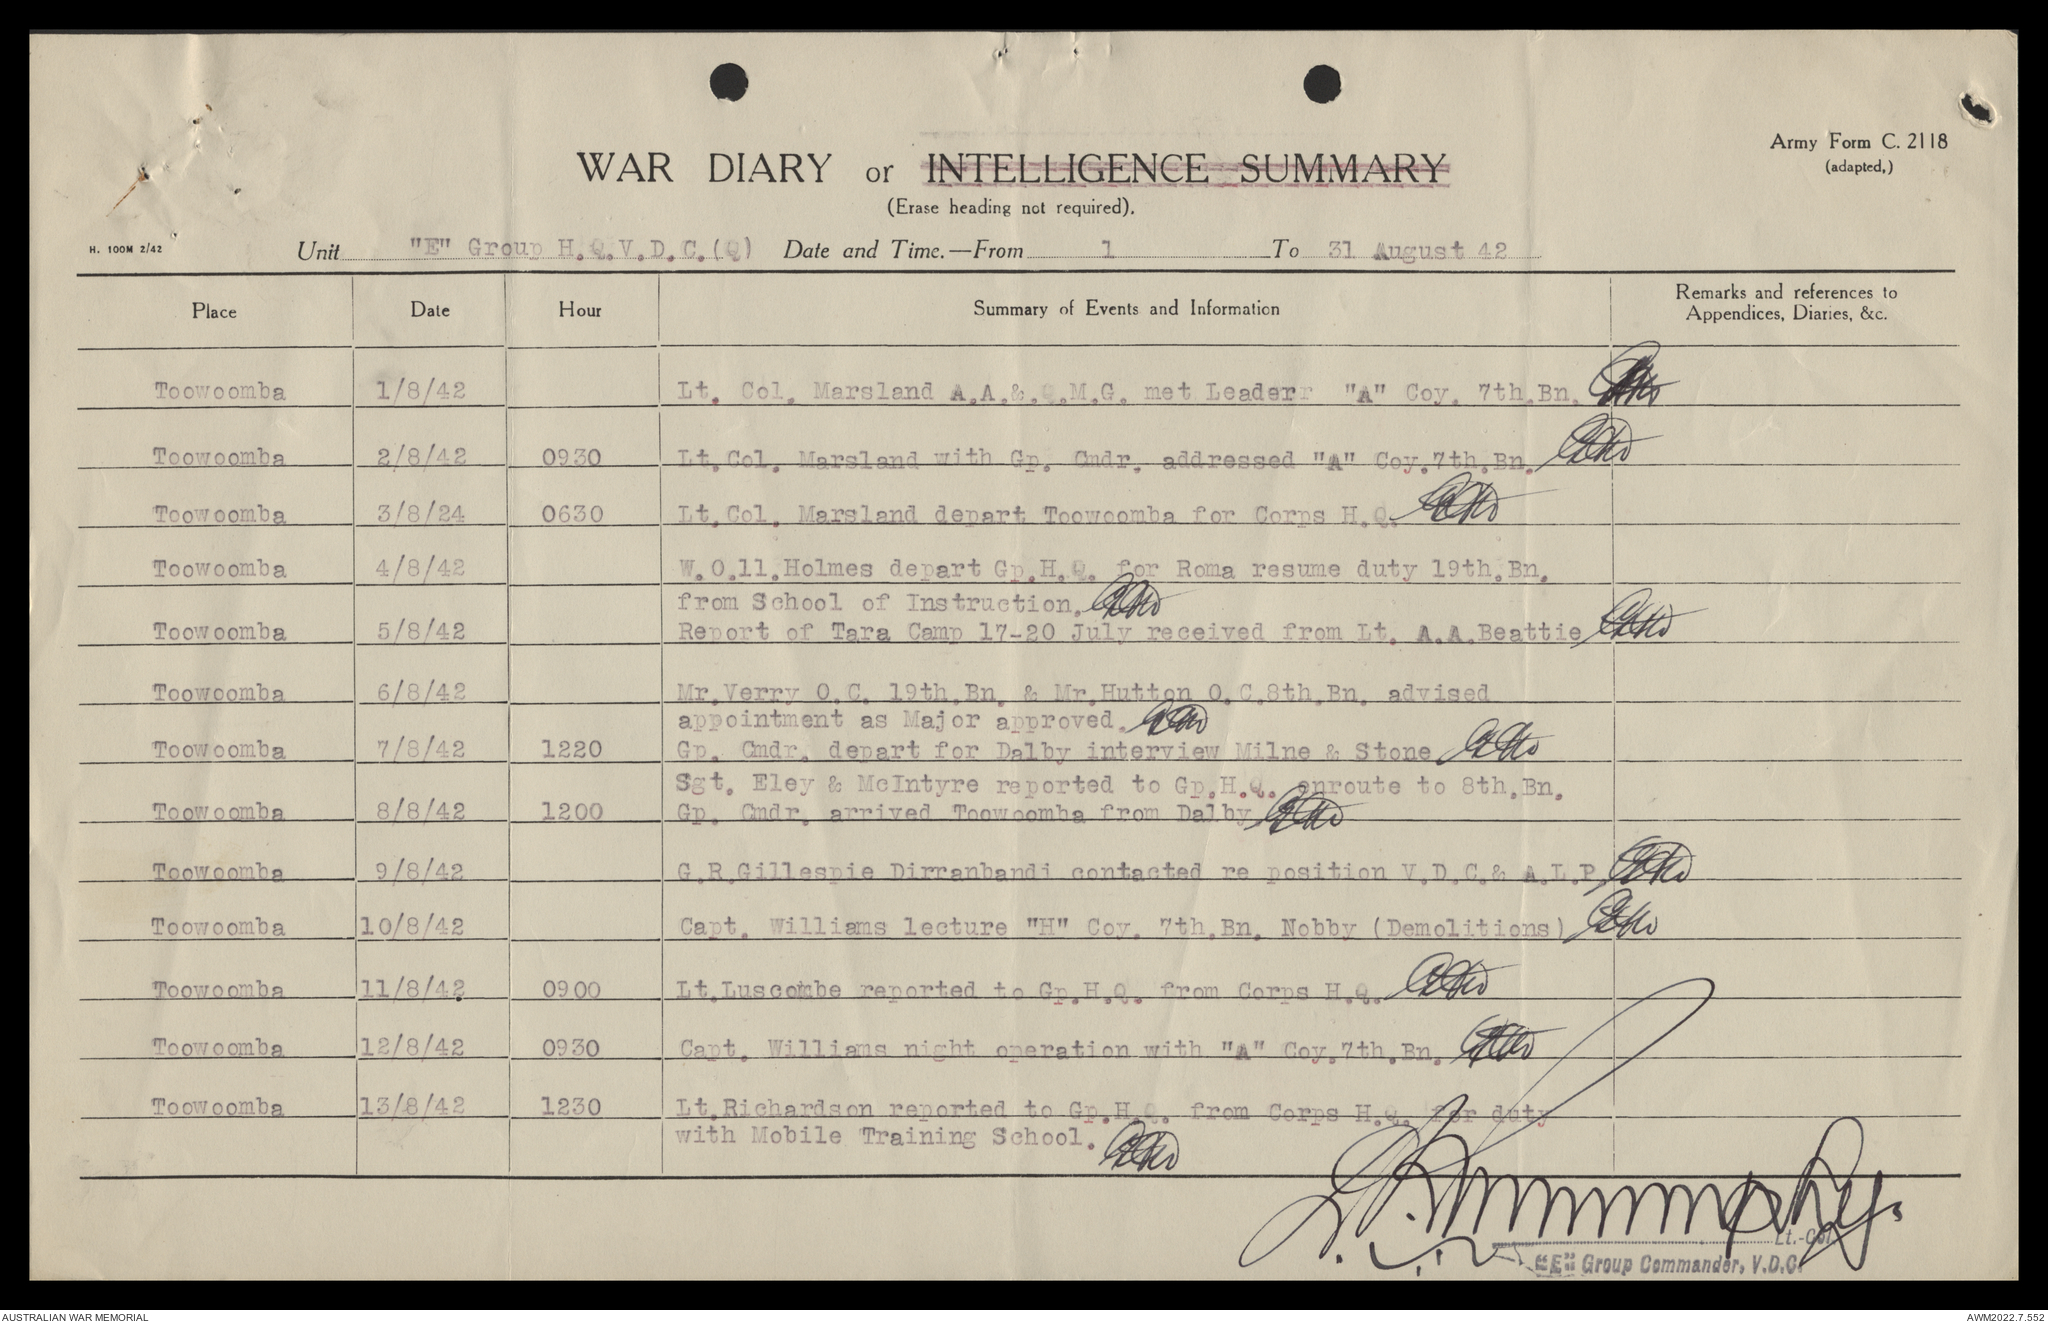 Army Form C. 2118
(adapted,)
WAR DIARY or INTELLIGENCE SUMMARY
(Erase heading not required).
H. 100M 2/42
Unit "E" Group H.Q.V.D.C.(Q) Date and Time.—From 1 To 31 August 42
Place Date Hour Summary of Events and Information Remarks and references to
Appendices, Diaries, &c.
Toowoomba 1/8/42 Lt. Col. Marsland A.A.&.Q.M.G. met Leaderr "A" Coy. 7th.Bn.
Toowoomba 2/8/42 0930 Lt.Col. Marsland with Gp. Cmdr. addressed "A" Coy.7th.Bn.
Toowoomba 3/8/24 0630 Lt.Col. Marsland depart Toowoomba for Corps H.Q.
Toowoomba 4/8/42 W.O.11.Holmes depart Gp.H.Q. for Roma resume duty 19th.Bn.
from School of Instruction.
Toowoomba 5/8/42 Report of Tara Camp 17-20 July received from Lt. A.A.Beattie
Toowoomba 6/8/42 Mr.Verry O.C. 19th.Bn. & Mr.Hutton O.C.8th.Bn. advised
appointment as Major approved.
Toowoomba 7/8/42 1220 Gp. Cmdr. depart for Dalby interview Milne & Stone
Sgt. Eley & McIntyre reported to Gp.H.Q. enroute to 8th.Bn.
Toowoomba 8/8/42 1200 Gp. Cmdr. arrived Toowoomba from Dalby
Toowoomba 9/8/42 G.R.Gillespie Dirranbandi contacted re position V.D.C.& A.L.P.
Toowoomba 10/8/42 Capt. Williams lecture "H" Coy. 7th.Bn. Nobby (Demolitions)
Toowoomba 11/8/42 0900 Lt.Luscombe reported to Gp.H.Q. from Corps H.Q.
Toowoomba 12/8/42 0930 Capt. Williams night operation with "A" Coy.7th.Bn.
Toowoomba 13/8/42 1230 Lt.Richardson reported to Gp.H.Q. from Corps H.Q. for duty
with Mobile Training School.
Lt.-Col.
"E" Group Commander, V.D.C.
AUSTRALIAN WAR MEMORIAL
AWM2022.7.552